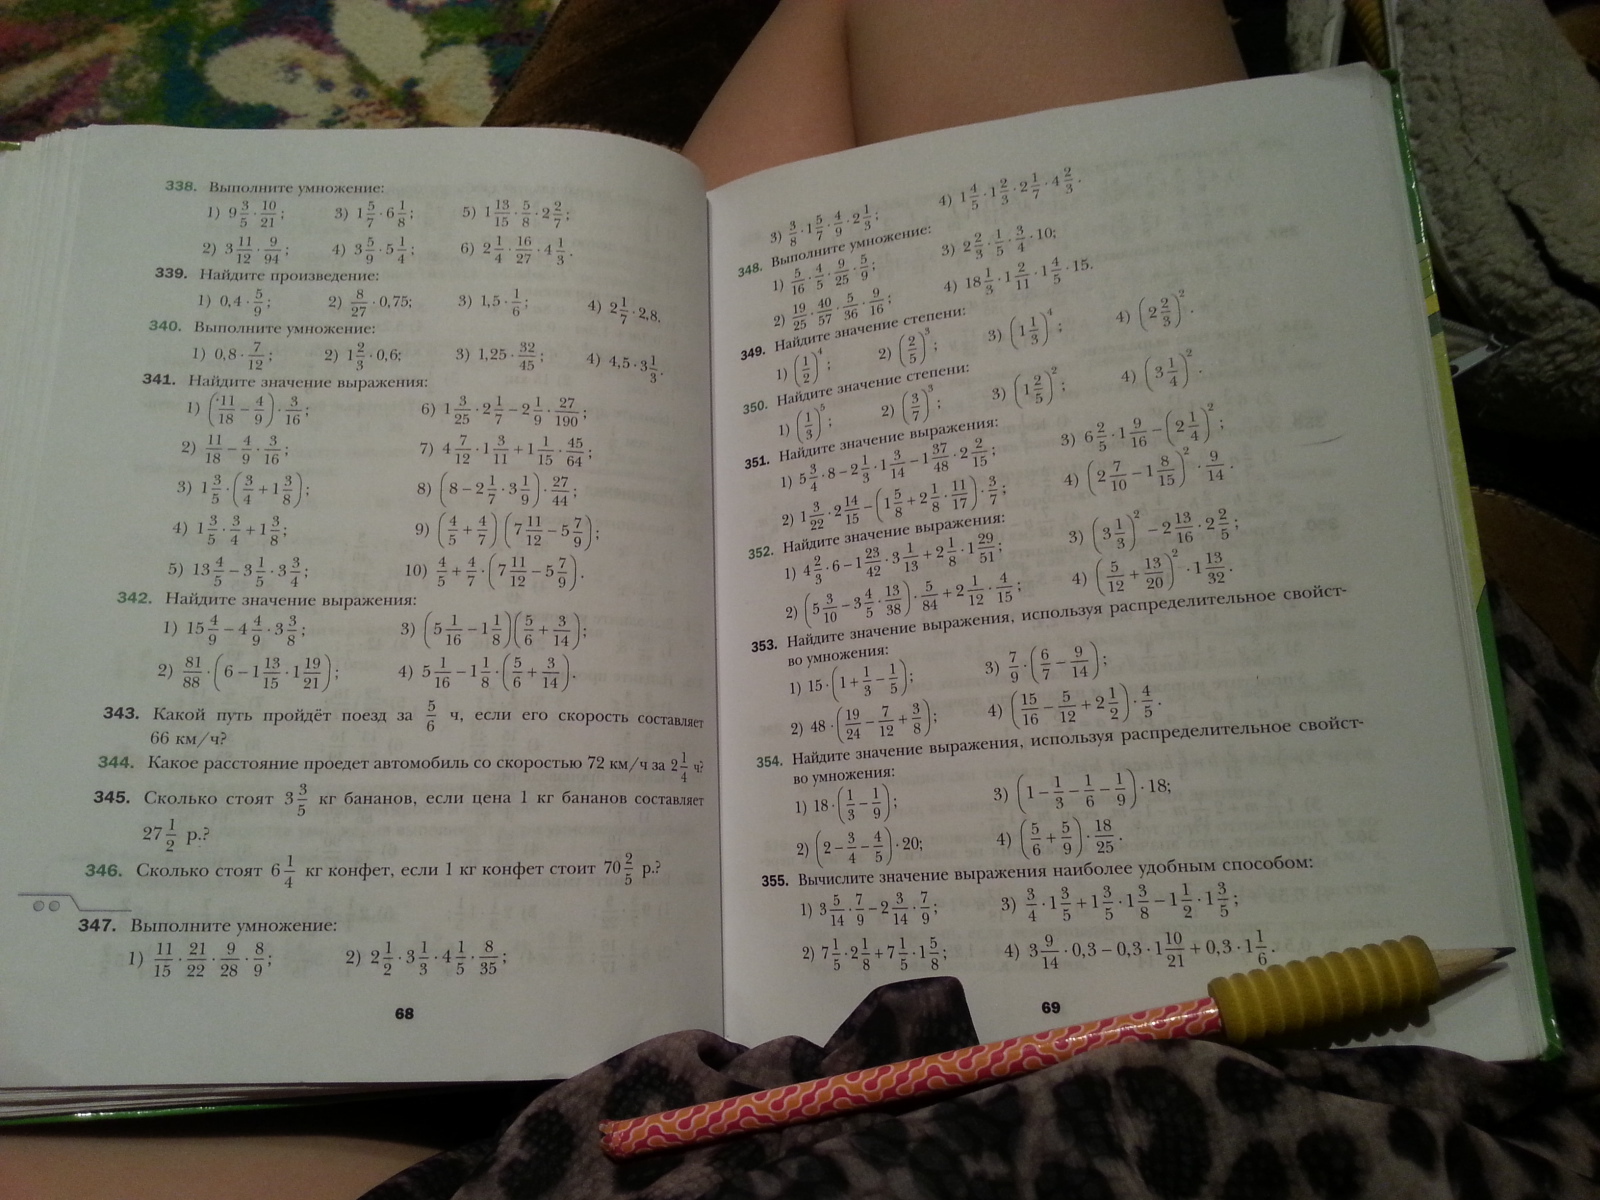 338. Выполните умножение:
1) 9 3/5 · 10/21; 3) 1 5/7 · 6 1/8; 5) 1 13/15 · 5/8 · 2 2/7;
2) 3 11/12 · 9/94; 4) 3 5/9 · 5 1/4; 6) 2 1/4 · 16/27 · 4 1/3.
339. Найдите произведение:
1) 0,4 · 5/9; 2) 8/27 · 0,75; 3) 1,5 · 1/6; 4) 2 1/7 · 2,8.
340. Выполните умножение:
1) 0,8 · 7/12; 2) 1 2/3 · 0,6; 3) 1,25 · 32/45; 4) 4,5 · 3 1/3.
341. Найдите значение выражения:
1) (11/18 − 4/9) · 3/16; 6) 1 3/25 · 2 1/7 − 2 1/9 · 27/190;
2) 11/18 − 4/9 · 3/16; 7) 4 7/12 · 1 3/11 + 1 1/15 · 45/64;
3) 1 3/5 · (3/4 + 1 3/8); 8) (8 − 2 1/7 · 3 1/9) · 27/44;
4) 1 3/5 · 3/4 + 1 3/8; 9) (4/5 + 4/7) · (7 11/12 − 5 7/9);
5) 13 4/5 − 3 1/5 · 3 3/4; 10) 4/5 + 4/7 · (7 11/12 − 5 7/9).
342. Найдите значение выражения:
1) 15 4/9 − 4 4/9 · 3 3/8; 3) (5 1/16 − 1 1/8)(5/6 + 3/14);
2) 81/88 · (6 − 1 13/15 · 1 19/21); 4) 5 1/16 − 1 1/8 · (5/6 + 3/14).
343. Какой путь пройдёт поезд за 5/6 ч, если его скорость составляет
66 км/ч?
344. Какое расстояние проедет автомобиль со скоростью 72 км/ч за 2 1/4 ч?
345. Сколько стоят 3 3/5 кг бананов, если цена 1 кг бананов составляет
27 1/2 р.?
346. Сколько стоят 6 1/4 кг конфет, если 1 кг конфет стоит 70 2/5 р.?
347. Выполните умножение:
1) 11/15 · 21/22 · 9/28 · 8/9; 2) 2 1/2 · 3 1/3 · 4 1/5 · 8/35;
68
3) 3/8 · 1 5/7 · 4/9 · 2 1/3; 4) 1 4/5 · 1 2/3 · 2 1/7 · 4 2/3.
348. Выполните умножение:
1) 5/16 · 4/5 · 9/25 · 5/9; 3) 2 2/9 · 1/5 · 3/4 · 10;
2) 19/25 · 40/57 · 5/36 · 9/16; 4) 18 1/3 · 1 2/11 · 1 4/5 · 15.
349. Найдите значение степени:
1) (1/2)⁴; 2) (2/5)³; 3) (1 1/3)⁴; 4) (2 2/3)².
350. Найдите значение степени:
1) (1/3)⁵; 2) (3/7)³; 3) (1 2/5)²; 4) (3 1/4)².
351. Найдите значение выражения:
1) 5 3/4 · 8 − 2 1/3 · 1 3/14 − 1 37/48 · 2 2/15; 3) 6 2/5 · 1 9/16 − (2 1/4)²;
2) 1 3/22 · 2 14/15 − (1 5/8 + 2 1/8 · 11/17) · 3/7; 4) (2 7/10 − 1 8/15)² · 9/14.
352. Найдите значение выражения:
1) 4 2/3 · 6 − 1 23/42 · 3 3/13 + 2 1/8 · 1 29/51; 3) (3 1/3)² − 2 13/16 · 2 2/5;
2) (5 3/10 − 3 4/5 · 13/38) · 5/84 + 2 1/12 · 4/15; 4) (5/12 + 13/20)² · 1 13/32.
353. Найдите значение выражения, используя распределительное свойст-
во умножения:
1) 15 · (1 + 1/3 − 1/5); 3) 7/9 · (6/7 − 9/14);
2) 48 · (19/24 − 7/12 + 3/8); 4) (15/16 − 5/12 + 2 1/2) · 4/5.
354. Найдите значение выражения, используя распределительное свойст-
во умножения:
1) 18 · (1/3 − 1/9); 3) (1 − 1/3 − 1/6 − 1/9) · 18;
2) (2 − 3/4 − 4/5) · 20; 4) (5/6 + 5/9) · 18/25.
355. Вычислите значение выражения наиболее удобным способом:
1) 3 5/14 · 7/9 − 2 3/14 · 7/9; 3) 3/4 · 1 3/5 + 1 3/8 · 1 3/5 − 1 1/2 · 1 3/5;
2) 7 1/5 · 2 1/8 + 7 1/5 · 1 5/8; 4) 3 9/14 · 0,3 − 0,3 · 1 10/21 + 0,3 · 1 1/6.
69